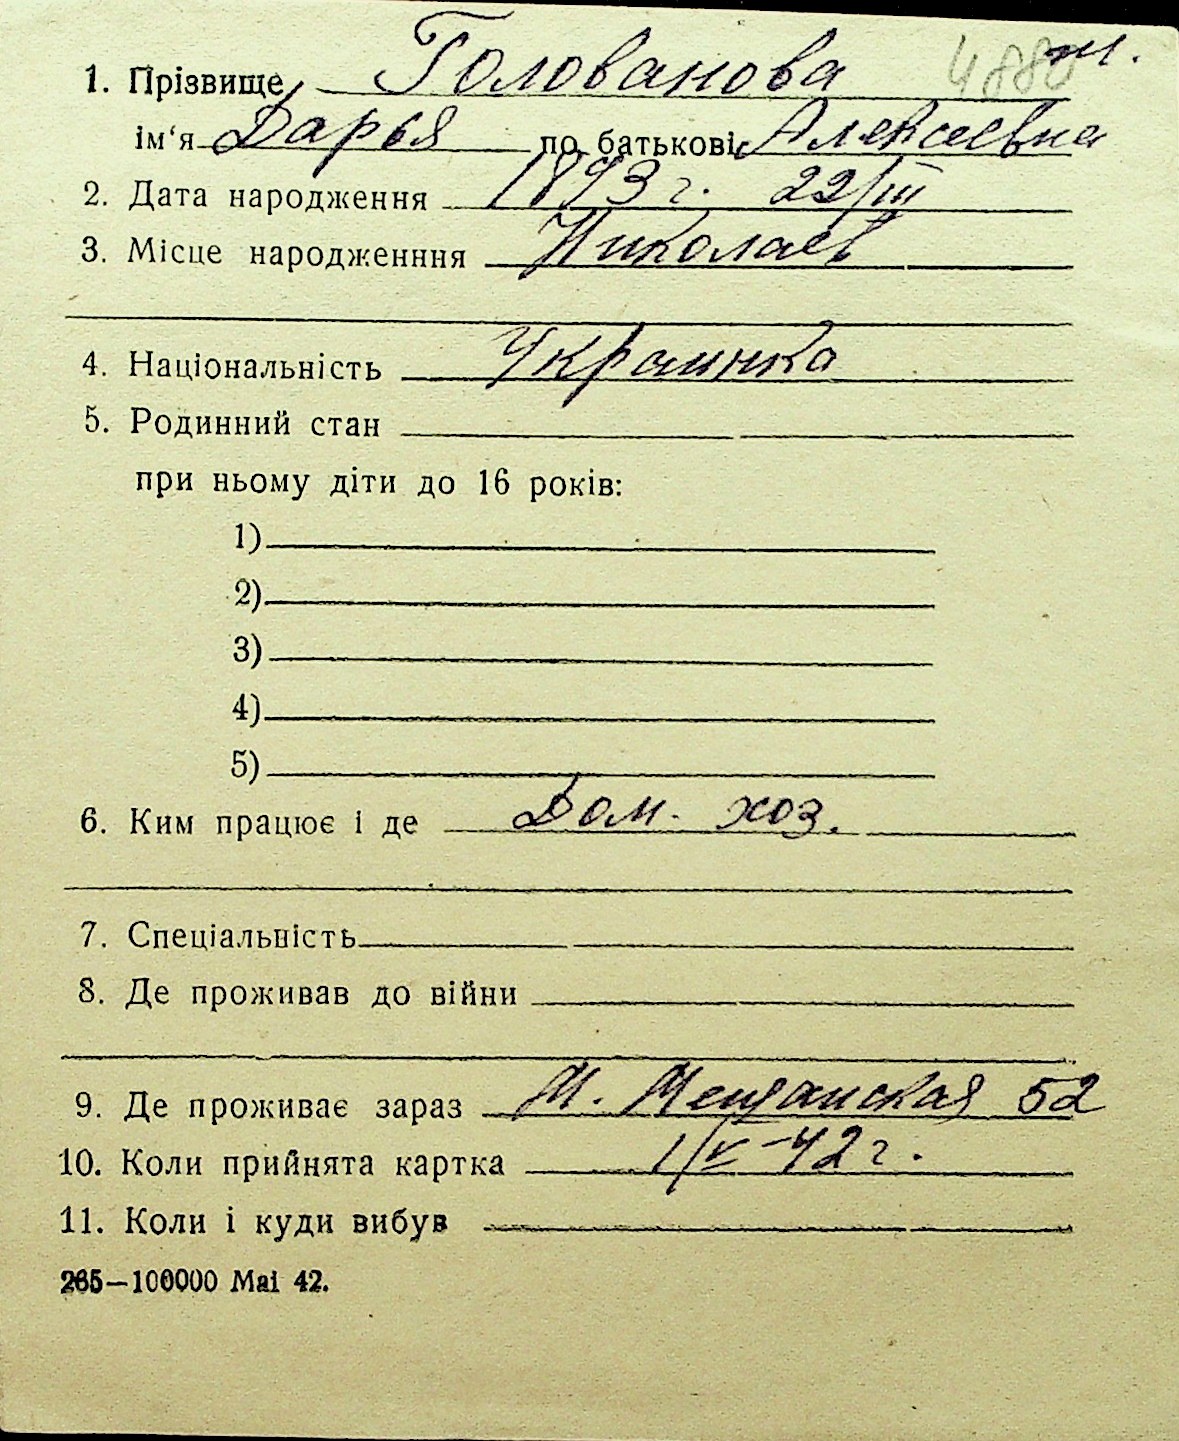 4880
1. Прізвище Голованова
ім‘я Дарья по батькові Алексеевна
2. Дата народження 1893 г. 22/III
3. Місце народженння Николаев
4. Національність Украинка
5. Родинний стан
при ньому діти до 16 років:
1)
2)
3)
4)
5)
6. Ким працює і де Дом. хоз.
7. Спеціальність
8. Де проживав до війни
9. Де проживає зараз Мещанская 52
10. Коли прийнята картка 1/V-42 г.
11. Коли і куди вибув
265—100000 Mai 42.